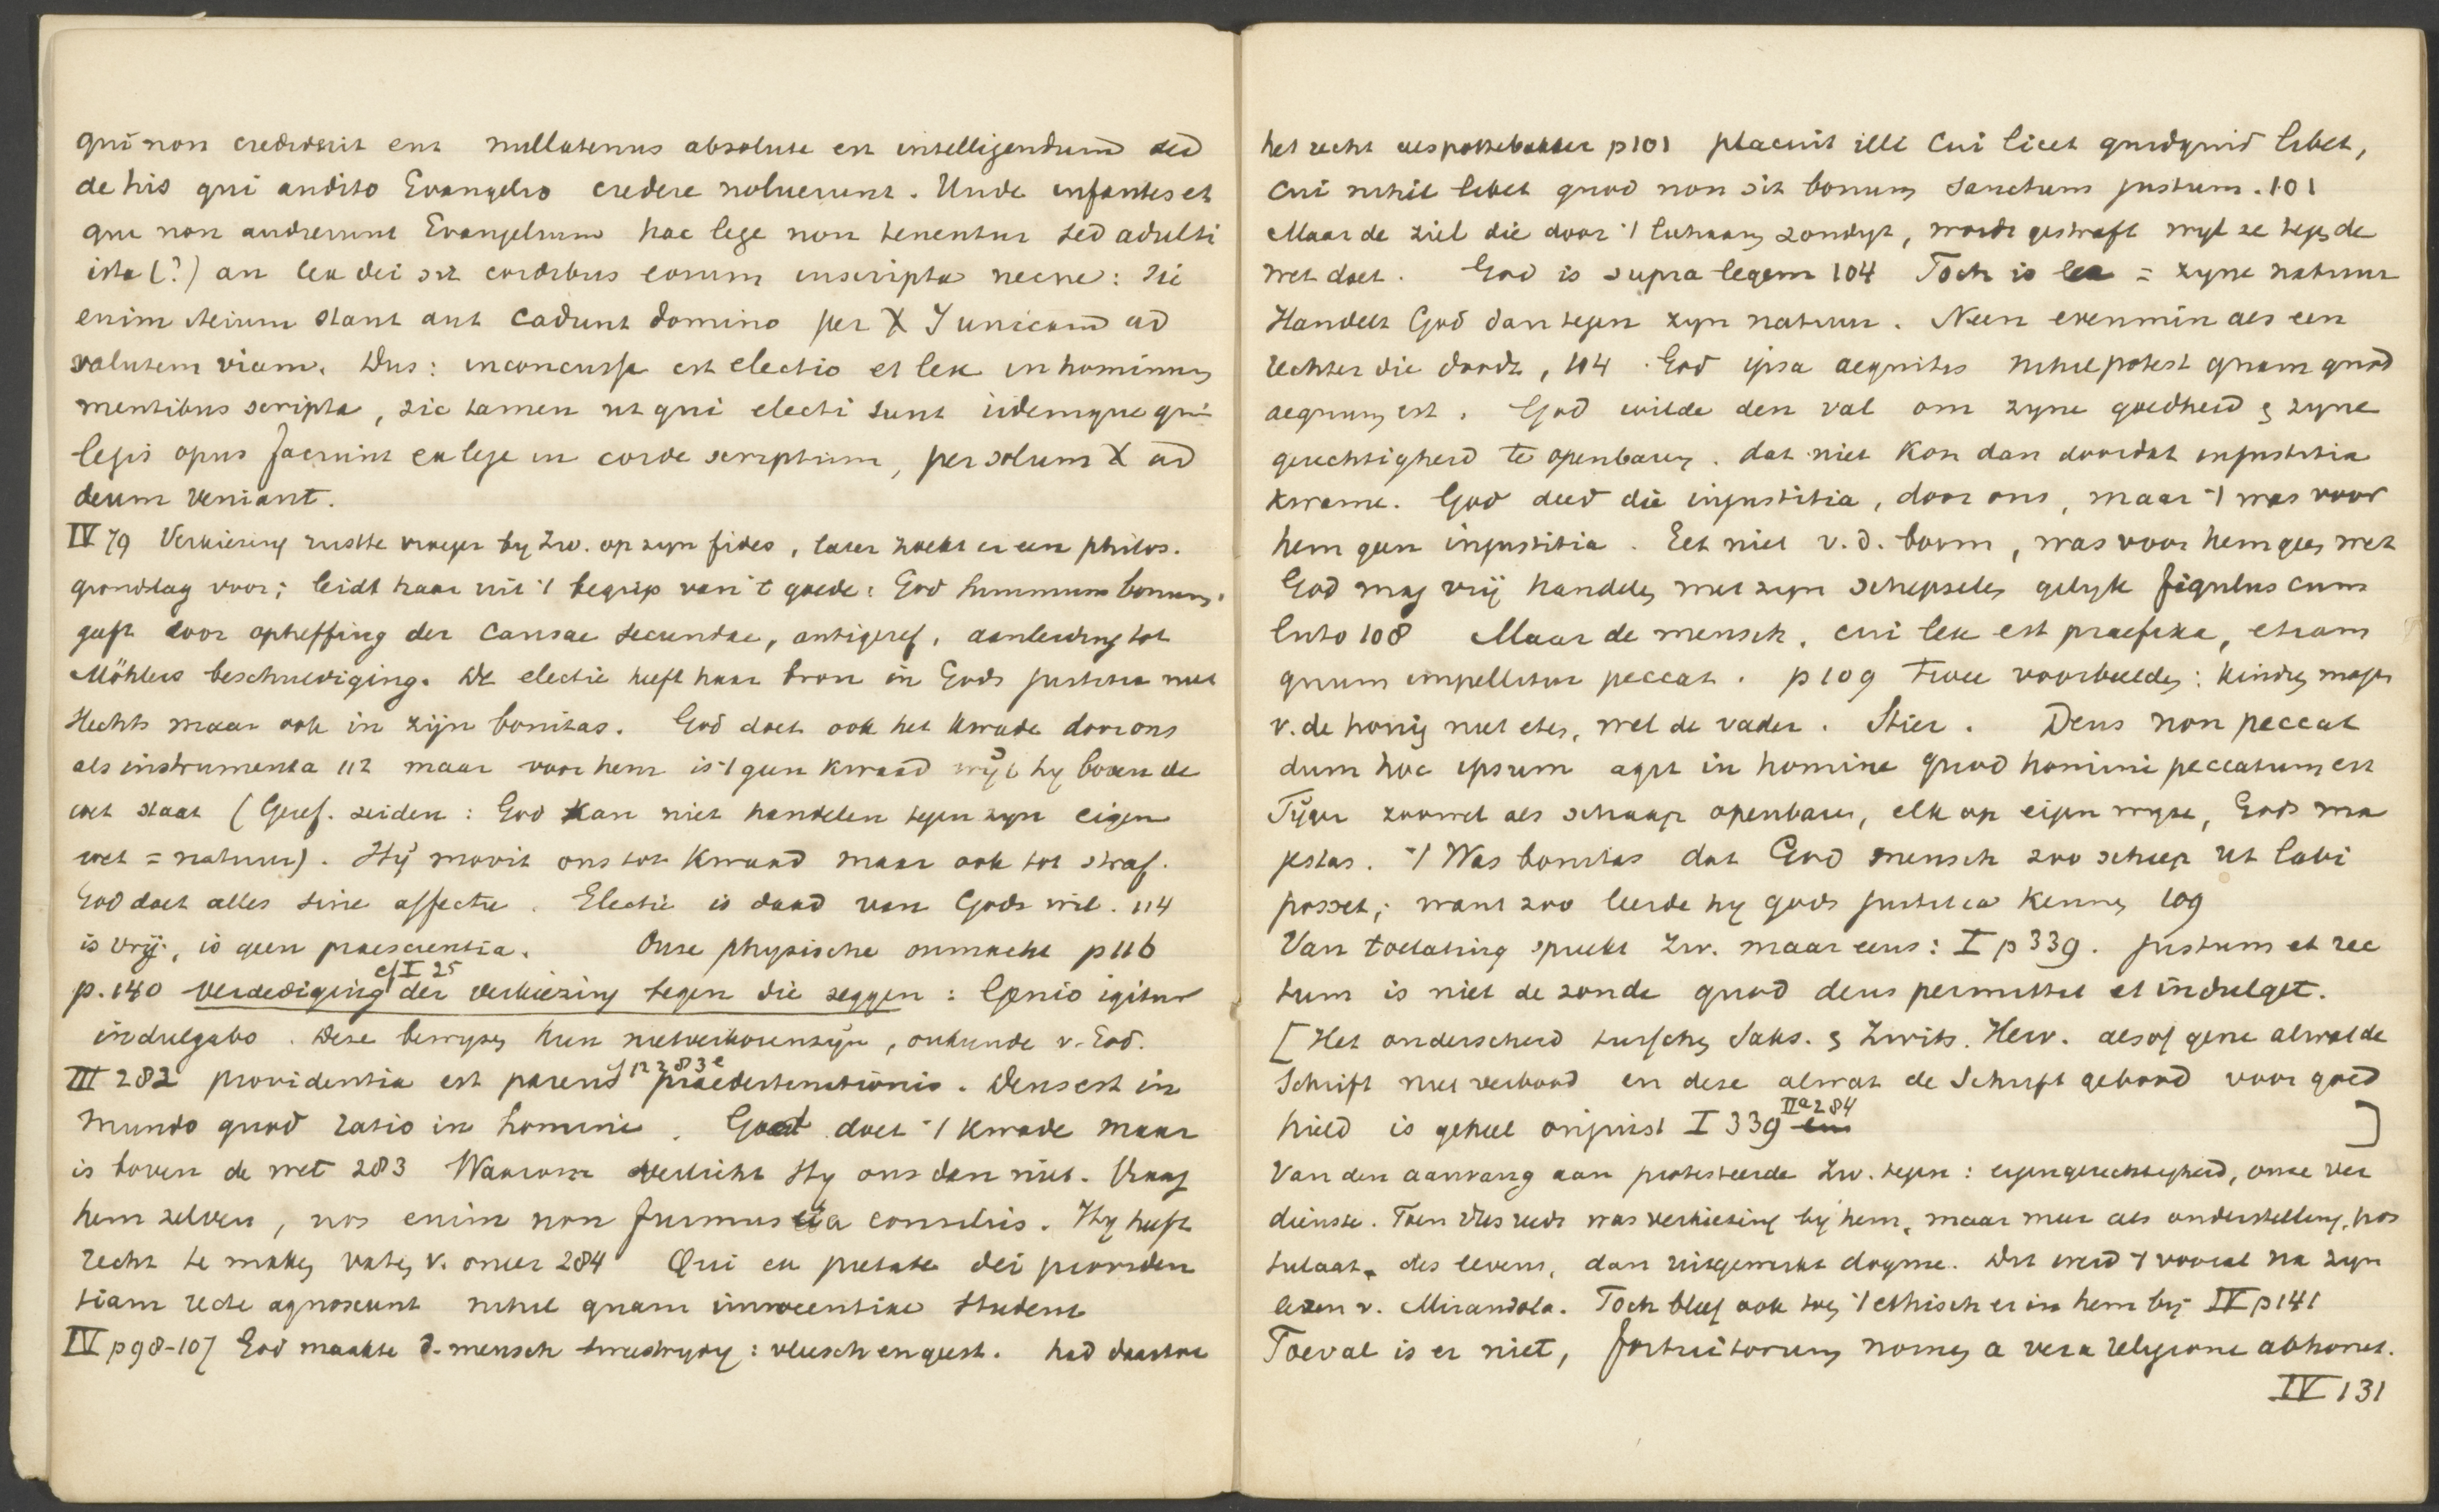 qui non crediderit enz nullatenus absolute est intelligendum sed
de his qui audito Evangelio credere noluerunt. Unde infantes et
qui non audierunt Evangelium hac lege non tenentur sed adulti
ista (?) an lex dei sit cordibus eorum inscripta necne: sic
enim stant aut cadunt domino per X J unicam ad
salutem viam. Dus: inconcussa est electio et lex in hominum
mentibus scripta, sic tamen ut qui electi sunt iidemque qui
legis opus faciunt ex lege in corde scriptum, per solum X ad
deum veniant.
IV 79 Verkiezing rustte vroeger by Zw. op zyn fides, later zoekt er een philos.
grondslag voor; leidt haar uit 't begrip van 't goede: God summum bonum.
geeft door opheffing der causae secundae, antigeref, aanleiding tot
Möhlers beschuldiging. De electie heeft haar bron in Gods justitia niet
slechts maar ook in zijn bonitas. God doet ook het kwade door ons
als instrumenta 112 maar voor hem is 't geen kwaad wijl hy boven de
wet staat (Geref. zeiden: God kan niet handelen tegen zyn eigen
wet = natuur). Hij movit ons tot kwaad maar ook tot straf.
God doet alles sine affectu. Electie is daad van Gods wil. 114
is vrij, is geen praescientia. Onze physische onmacht p 116
cf I 25
p. 140 verdediging der verkiezing tegen die zeggen: Genio igitur
indulgabo. Deze bewyzen hun nietverkorenzijn, onkunde v. God.
cf 112 283e
III 282 providentia est parens praedestinationis. Deus est in
mundo quod ratio in homine. God doet 't kwade maar
is boven de wet 283 Waarom verlicht Hy ons dan niet. Vraag
hem zelven, nos enim non fuimus ei a consiliis. Hy heeft
recht te maken vaten v. oneer 284 Qui ex pietate dei providen
tiam recte agnoscunt nihil quam innocentiae student
IV p 98-107 God maakte d. mensch tweestrydig: vleesch en geest. had daartoe
het recht des pottebakker p 101 placuit illi cui licet quidquid libet,
cui nihil libet quod non sit bonum sanctum justum. 101
Maar de ziel die door 't lichaam zondigt, wordt gestraft wyl ze tegen de
wet doet. God is supra legem 104 Toch is lex = zyne natuur
Handelt God dan tegen zyn natuur. Neen evenmin als een
rechter die doodt, 104. God ipsa aequitas nihil potest quam quod
aequum est. God wilde den val om zyne goedheid & zyne
gerechtigheid te openbaren. dat niet kon dan doordat injustitia
kwame. God deed die injustitia, door ons, maar 't was voor
hem geen injustitia. Eet niet v. d. boom, was voor hem geen wet
God mag vrij handelen met zyn schepselen gelyk figulus cum
luto 108 Maar de mensch, cui lex est praefixa, etiam
quum impellitur peccat. p 109 Twee voorbeelden: kinderen mogen
v. de honig niet eten, wel de vader. Stier. Deus non peccat
dum hoc ipsum agit in homine quod homini peccatum est
Tijger zoowel als schaap openbaren, elk op eigen wyze, Gods ma
jestas. 't Was bonitas dat God mensch zoo schiep ut labi
posset; want zoo leerde hy gods justitia kennen 109
Van toelating spreekt Zw. maar eens: I p 339. justum et rec
tum is niet de zonde quod deus permittet et indulget.
[Het onderscheid tusschen Saks. & Zwits. Herv. alsof gene alwat de
Schrift niet verbood en deze alwat de Schrift gebood voor goed
IIa 284
hield is geheel onjuist I 339 ]
Van den aanvang aan protesteerde Zw. tegen: eigengerechtigheid, onze ver
dienste. Toen dus reeds was verkiezing bij hem, maar meer als onderstelling, pos
tulaat des levens, dan uitgewerkt dogme. Dit werd 't vooral na zyn
lezen v. Mirandola. Toch bleef ook toen 't ethische er in hem bij IV p 141
Toeval is er niet, fortuitorum nomen a vera religione abhorret.
IV 131